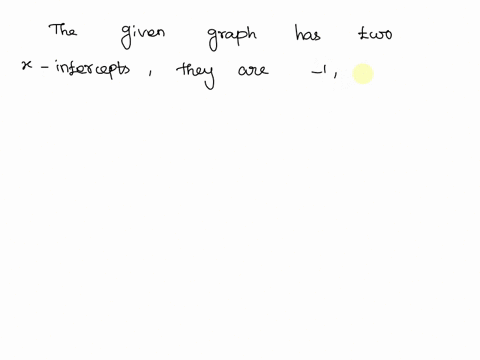 The given graph has two
x-intercepts, they are -1,